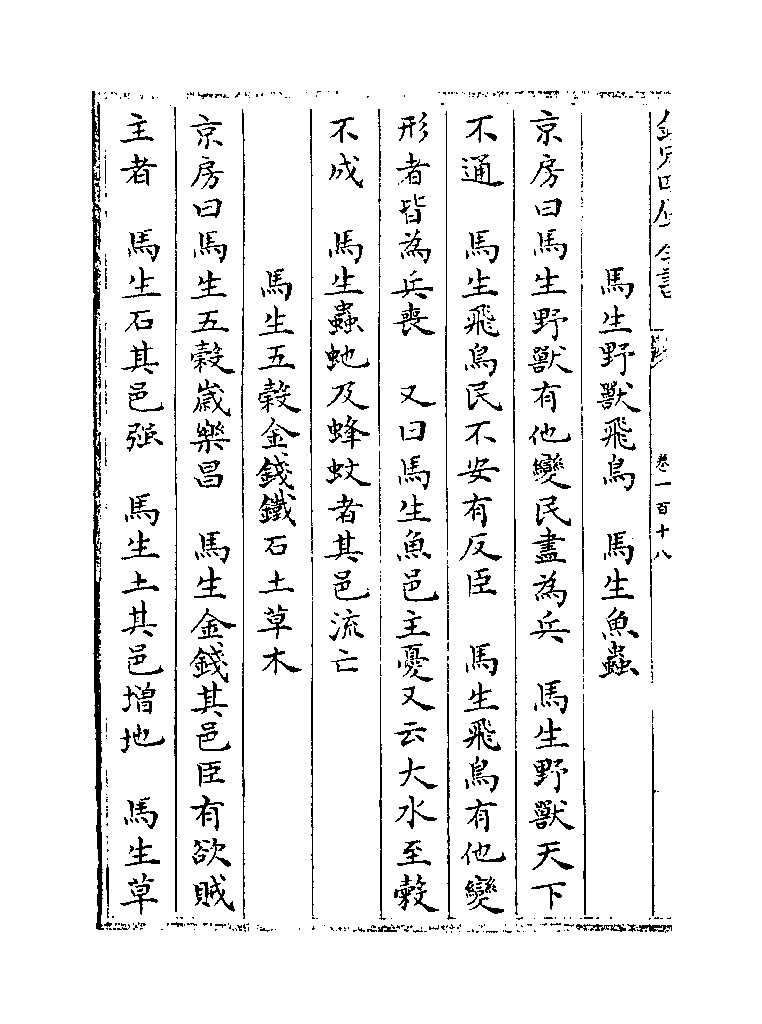 欽定四庫全書
卷一百十八
馬生野獸飛鳥　馬生魚蟲
京房曰馬生野獸有他變民盡為兵　馬生野獸天下
不通　馬生飛鳥民不安有反臣　馬生飛鳥有他變
形者皆為兵喪　又曰馬生魚邑主憂又云大水至榖
不成　馬生蟲虵及蜂蚊者其邑流亡
馬生五穀金錢鐵石土草木
京房曰馬生五穀嵗樂昌　馬生金錢其邑臣有欲賊
主者　馬生石其邑強　馬生土其邑増地　馬生草